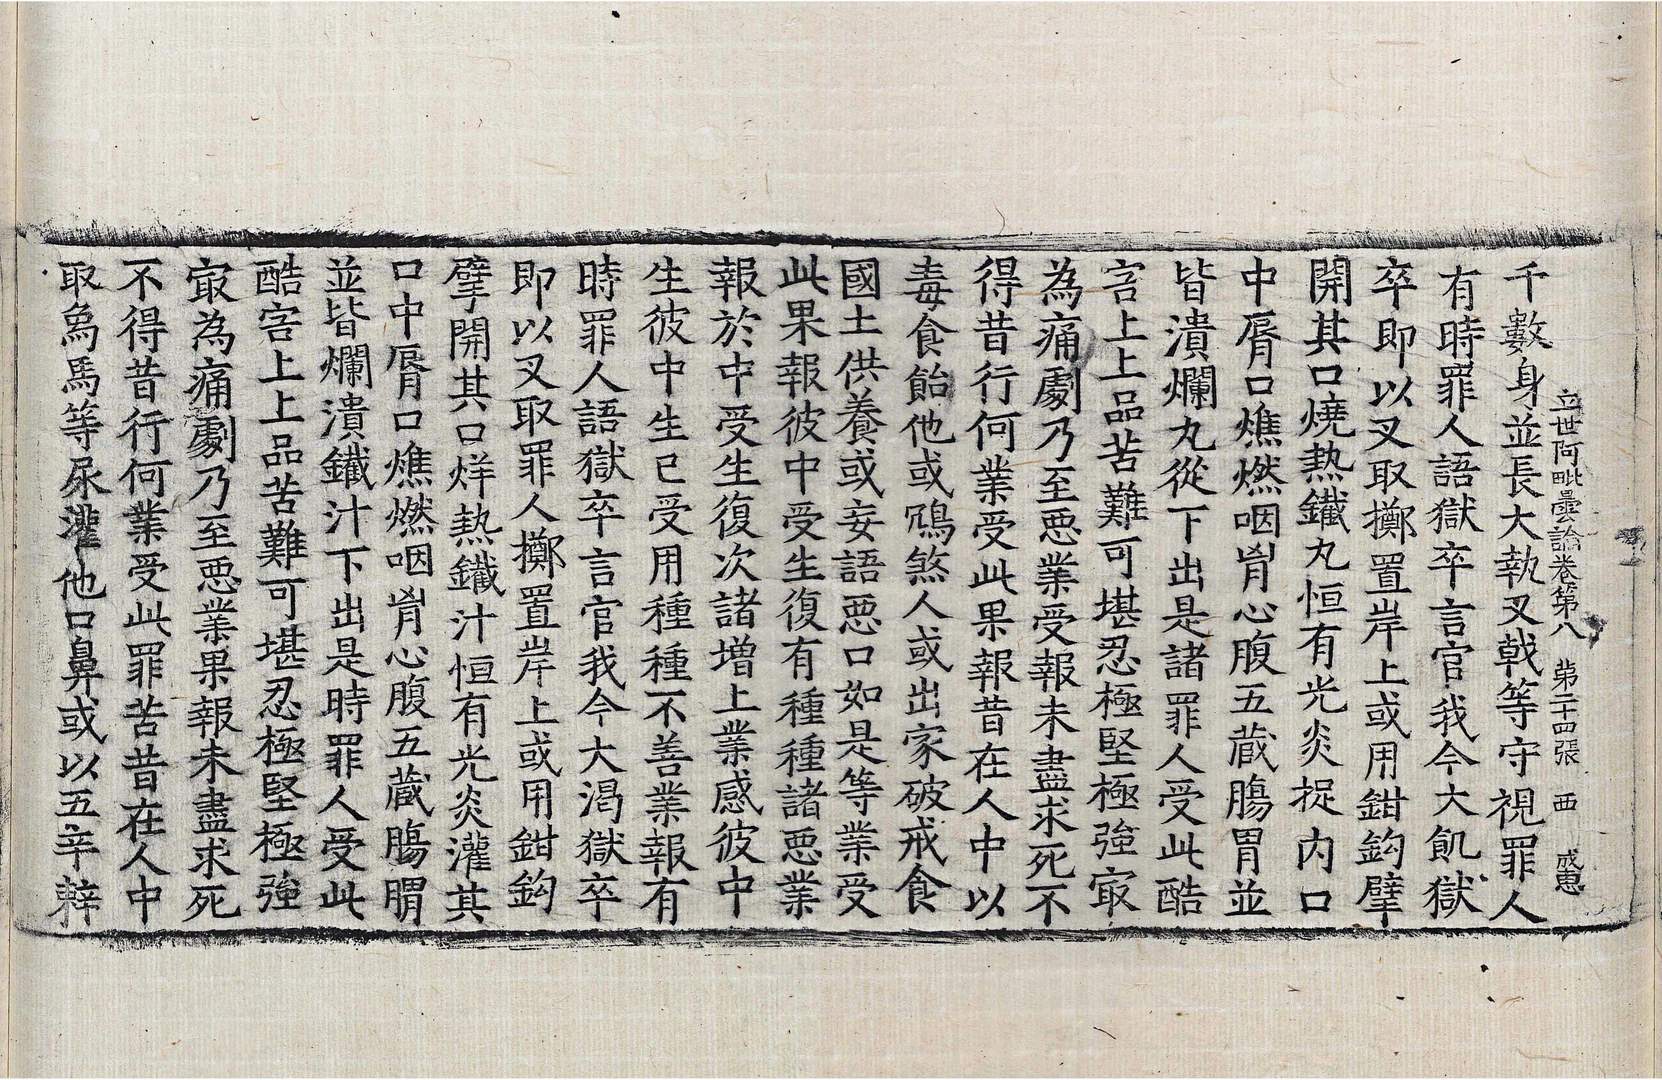 立世阿毗曇論卷第八　第二十四張　西　成惠
千數身並長大執叉戟等守視罪人
有時罪人語獄卒言官我今大飢獄
卒即以叉取擲置岸上或用鉗鈎擘
開其口燒熱鐵丸恒有光炎捉內口
中脣口燋燃咽胷心腹五藏膓胃並
皆潰爛丸從下出是諸罪人受此酷
害上上品苦難可堪忍極堅極強㝡
為痛劇乃至惡業受報未盡求死不
得昔行何業受此果報昔在人中以
毒食飴他或鴆煞人或出家破戒食
國土供養或妄語惡口如是等業受
此果報彼中受生復有種種諸惡業
報於中受生復次諸增上業感彼中
生彼中生已受用種種不善業報有
時罪人語獄卒言官我今大渴獄卒
即以叉取罪人擲置岸上或用鉗鈎
擘開其口烊熱鐵汁恒有光炎灌其
口中脣口燋燃咽胷心腹五藏膓胃
並皆爛潰鐵汁下出是時罪人受此
酷害上上品苦難可堪忍極堅極強
㝡為痛劇乃至惡業果報未盡求死
不得昔行何業受此罪苦昔在人中
取象馬等尿灌他口鼻或以五辛辣